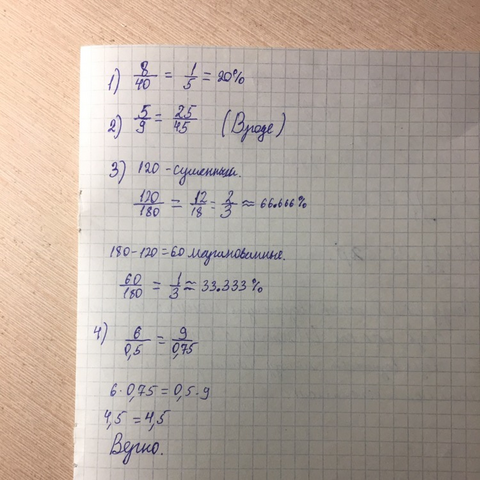 1) 8/40 = 1/5 = 20%
2) 5/9 = 25/45 (Вроде)
3) 120 - сушеница.
120/180 = 12/18 = 2/3 ≈ 66.666%
180-120 = 60 маринованные.
60/180 = 1/3 ≈ 33.333%
4) 6/0,5 = 9/0,75
6·0,75 = 0,5·9
4,5 = 4,5
Верно.